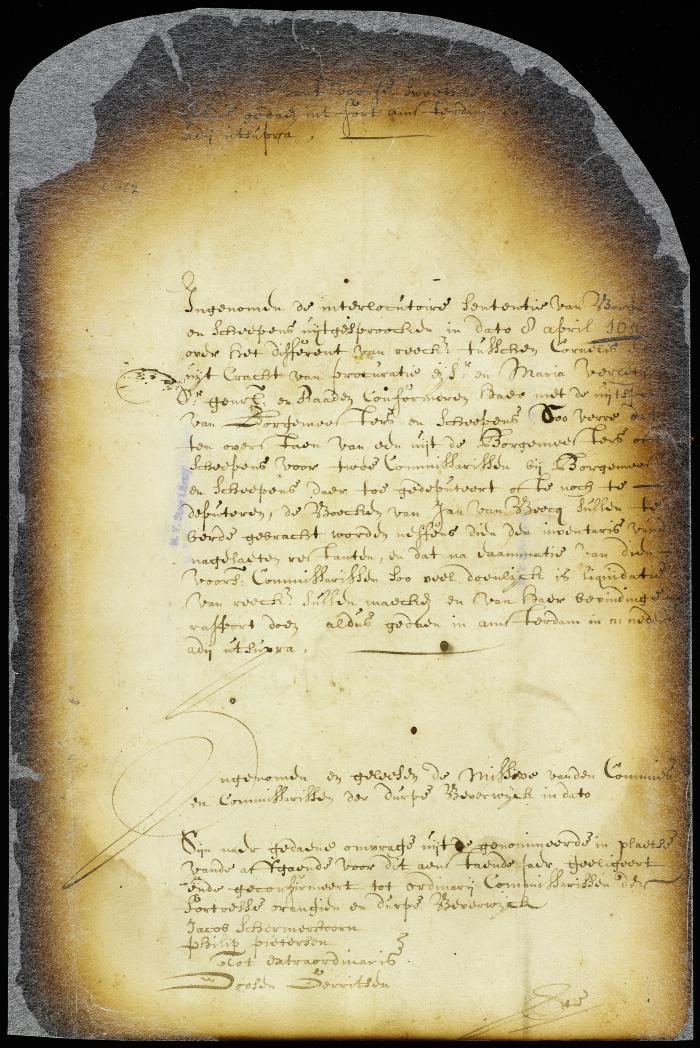 gedaen int fort amsterdam
adij utsupra
Ingenomen de interlocutoire sententie van Borge
en Scheepens uijtgesproocken in dato 8 april
over het different van reeck: tusschen Cornelis
uijt Cracht van procuratie en Maria Verlet
geurl: en Raaden Conformeren haer met de uijtsp
van Borgemeesters en Scheepens Soo verre
ten overstaen van een uijt de Borgemeesters
Scheepens voor twee Commissarissen bij Borgemee
en Scheepens daer toe gedeputeert of te noch te
deputeren, de Boecken van Jan van Beecq sullen te
berde gebracht worden neffens dien den inventaris vand
nagelaeten restanten, en dat na examinatie van dien
voors: Commissarissen soo veel doenlijck is liquidatie
van reeck: sullen maecken en van haer bevindinge
rapport doen aldus gedaen in amsterdam in n: neder
adij utsupra,
Ingenomen en geleesen de Missive vanden Commis
en Commissarissen der durpe Beverwijck in dato
Sijn naer gedaene omvrage uijt de genomineerde in plaetse
vande afgaende voor dit aenstaende Jaer geeligeert
ende geconfirmeert tot ordinarij Commissarissen der
Fortresse orangien en durpe Beverwijck
Jacob Schermerhoorn
philip pietersen
Tot extraordinaris
Goosen Gerritsen